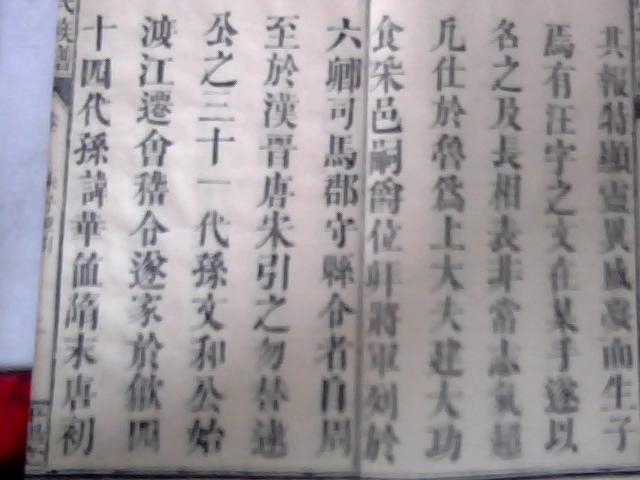 其報特顯靈異感凝而生子
焉有汪字之文在某手遂以
名之及長相表非常志氣超
凡仕於魯爲上大夫建大功
食采邑嗣爵位拜將軍列於
六卿司馬郡守縣令者自周
至於漢晋唐朱引之勿替逮
公之三十一代孫文和公始
渡江遷會稽令遂家於歙四
十四代孫諱華値隋末唐初
氏族譜